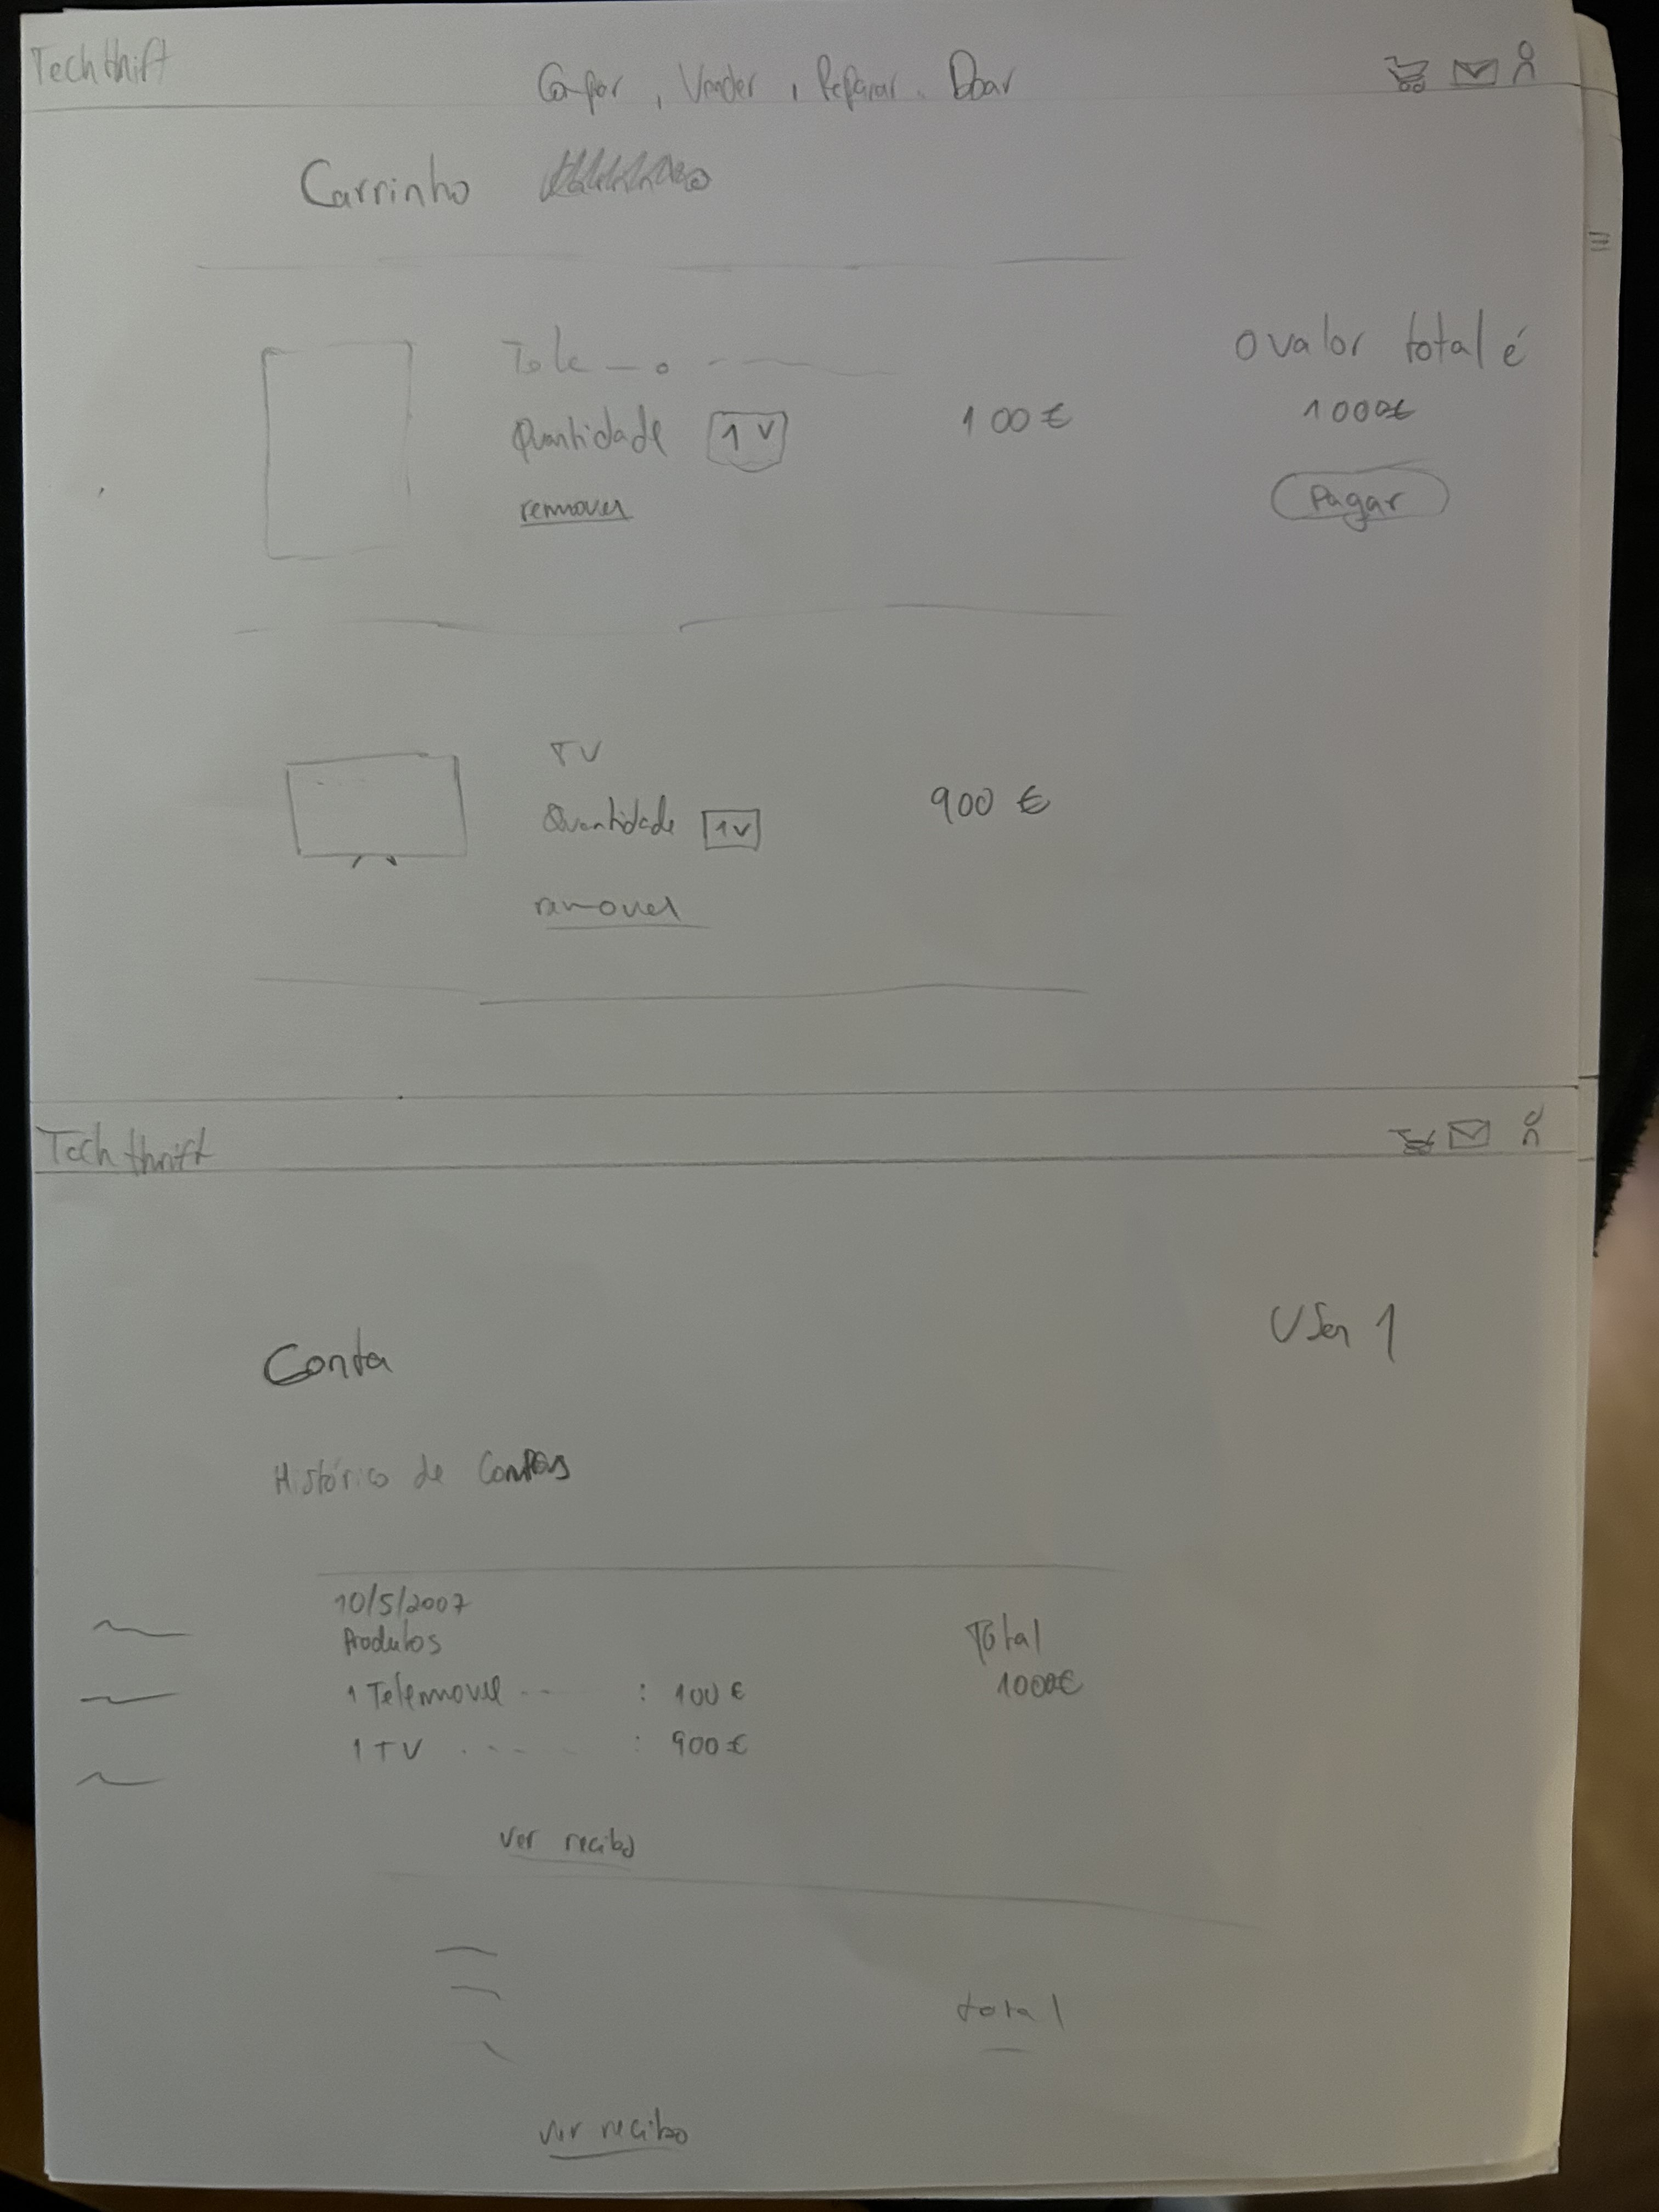 Tech thift
Compar, Vender, Reparar, Doar
Carrinho
Tele
Quantidade 1 v
remover
100 €
o valor total é
1000€
Pagar
TV
Quantidade 1 v
remover
900 €
Tech thrift
Conta
User 1
Histórico de Compras
10/5/2007
Produtos
1 Telemovel : 100 €
1 TV : 900 €
Total
1000€
ver recibo
total
ver recibo